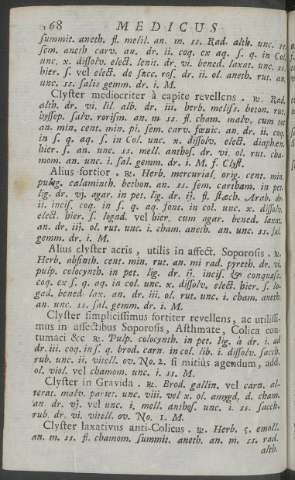 68 MEDICUS
summit. aneth. fl. melil. an. m. ss. Rad. alth. unc.
sem. aneth carv. an. dr. ii. coq. ex aq. s. q. in Col.
unc. x. dissolv. elect. lenit. dr. vi. bened. laxat. unc. ss.
hier. s. vel elect. de succ. ros. dr. ii. ol. aneth. rut. an.
unc. ss. salis gemm. dr. i. M.
Clyster mediocriter à capite revellens . ℞. Rad.
alth. dr. vi. lil. alb. dr. iii. herb. meliss. beton. ru.
hyssop. salv. rorism. an. m ss. fl. cham. malv. cum
an. min. cent. min. pi. sem. carv. fœnic. an. dr. ii. coq.
in s. q. aq. s. in Col. unc. x. dissolv. elect. diaphœn.
hier. s. an. unc. ss. mell. anthos. dr. vi. ol. rut. cha-
mom. an. unc. i. sal. gemm. dr. i. M. f. Clyst.
Alius fortior . ℞. Herb. mercurial. orig. cent. min.
puleg. calaminth. bethon. an. ss. sem. cartham. in pet.
lig. dr. vj. agar. in pet. lig. dr. ij. fl. stœch. Arab. dr.
ii. incis. coq. in s. q. aq. font. in col. unc. x. dissolv.
elect. hier. s. logad. vel hier. cum agar. bened. laxat.
an. dr. iii. ol. rut. unc. i. cham. aneth. an. unc. ss. sal.
gemm. dr. i. M.
Alius clyster acris, utilis in affect. Soporosis . ℞.
Herb. absinth. cent. min. rut. an. mi rad. pyreth. dr. vi.
pulp. colocynth. in pet. lig. dr. ii. incis. & conquass.
coq. ex s. q. aq. in col. unc. x. dissolv. elect. hier. s. lo-
gad. bened lax. an. dr. iii. ol. rut. unc. i. cham. aneth.
an. unc. ss. sal. gemm. dr. i. M.
Clyster simplicissimus fortiter revellens, ac utilissi-
mus in affectibus Soporosis, Asthmate, Colica con-
tumaci &c ℞. Pulp. colocynth. in pet. lig. à dr. i. ad
dr. iii. coq. in s. q. brod. carn. in col. lib. i. dissolv. sacch.
rub. unc. ii. vitell. ov. No. 1. si mitius agendum, add.
ol. viol. vel chamom. unc. i. ss. M.
Clyster in Gravida . ℞. Brod. gallin. vel carn. al-
terat. malv. pariet. unc. viii. vel x. ol. amygd. d. cham.
an. dr. vj. vel unc. i. mell. anthos. unc. i. ss. sacch.
rub. dr. vi. vitell. ov. No. 1. M.
Clyster laxativus anti-Colicus . ℞. Herb. 5. emoll.
an. m. ss. fl. chamom. summit. aneth. an. m. ss. rad.
alth.